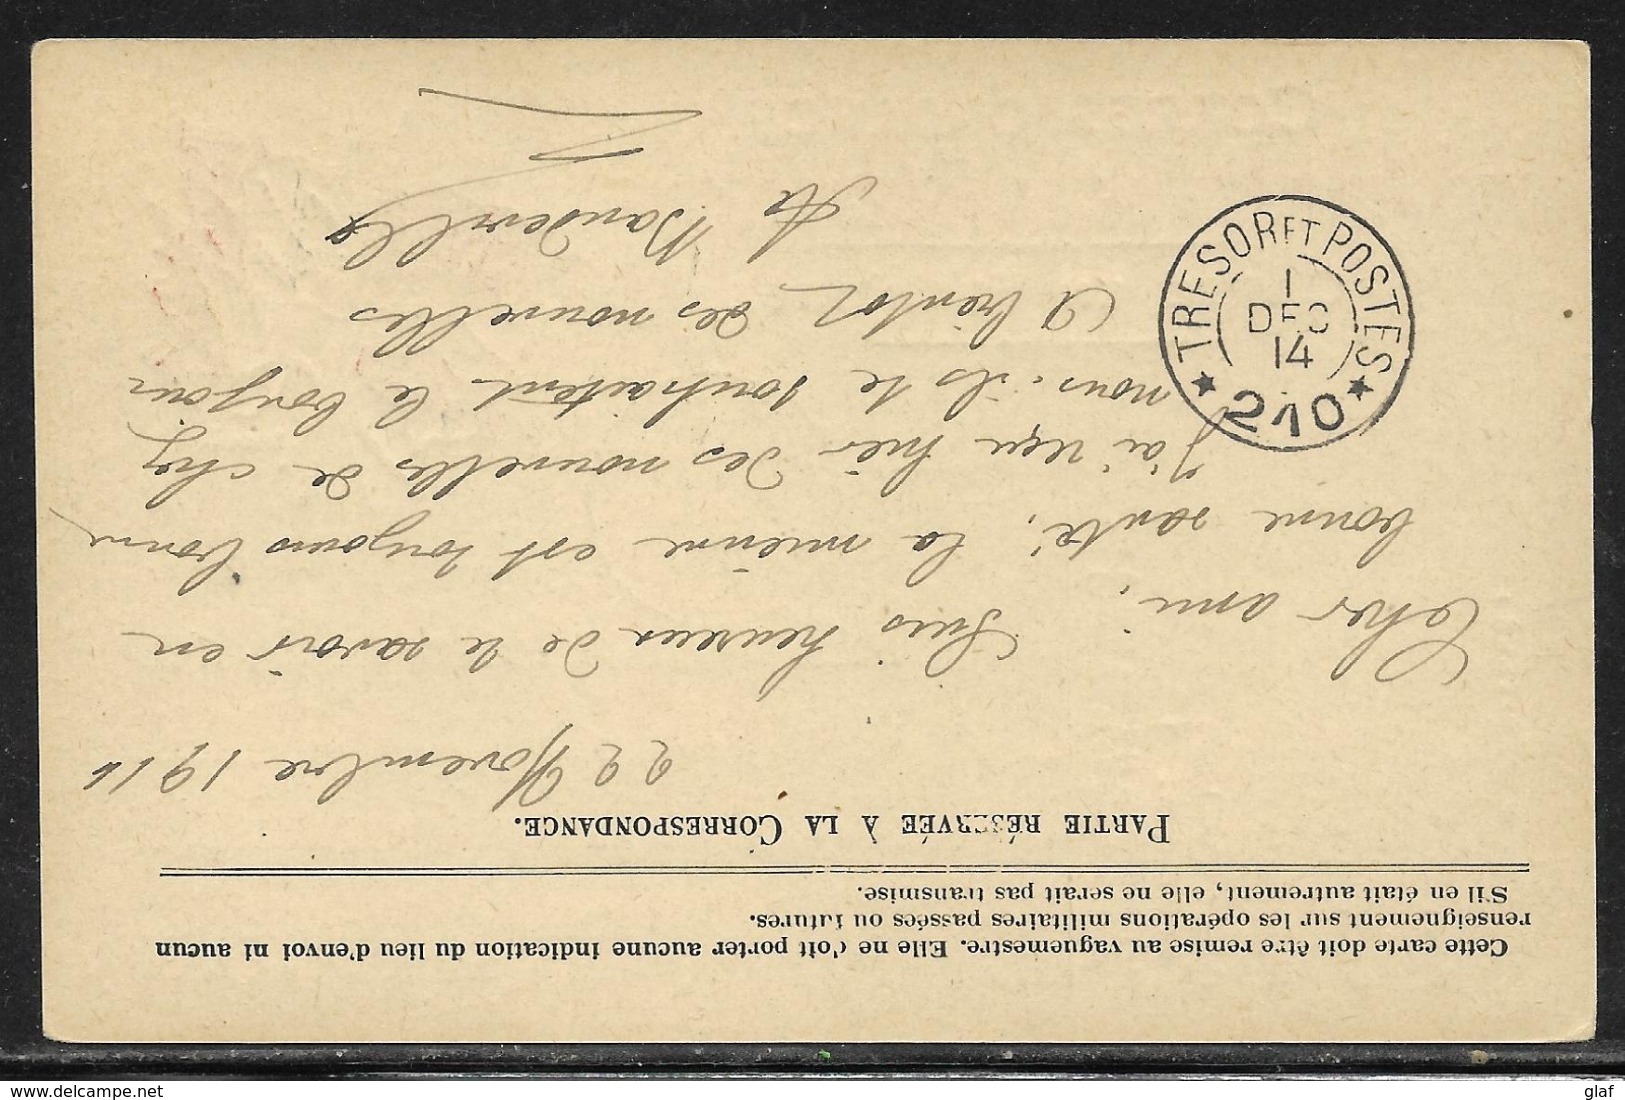 Cette carte doit être remise au vaguemestre. Elle ne doit porter aucune indication du lieu d'envoi ni aucun
renseignement sur les opérations militaires passées ou futures.
S'il en était autrement, elle ne serait pas transmise.
PARTIE RÉSERVÉE À LA CORRESPONDANCE.
22 Novembre 1914
Cher ami,
Suis heureux de te savoir en
bonne santé, la mienne est toujours bonne
J'ai reçu hier des nouvelles de chez
nous. ils te souhaitent le bonjour
A bientot des nouvelles
TRESOR ET POSTES
1
DEC
14
★ 210 ★
delcampe.net
glaf